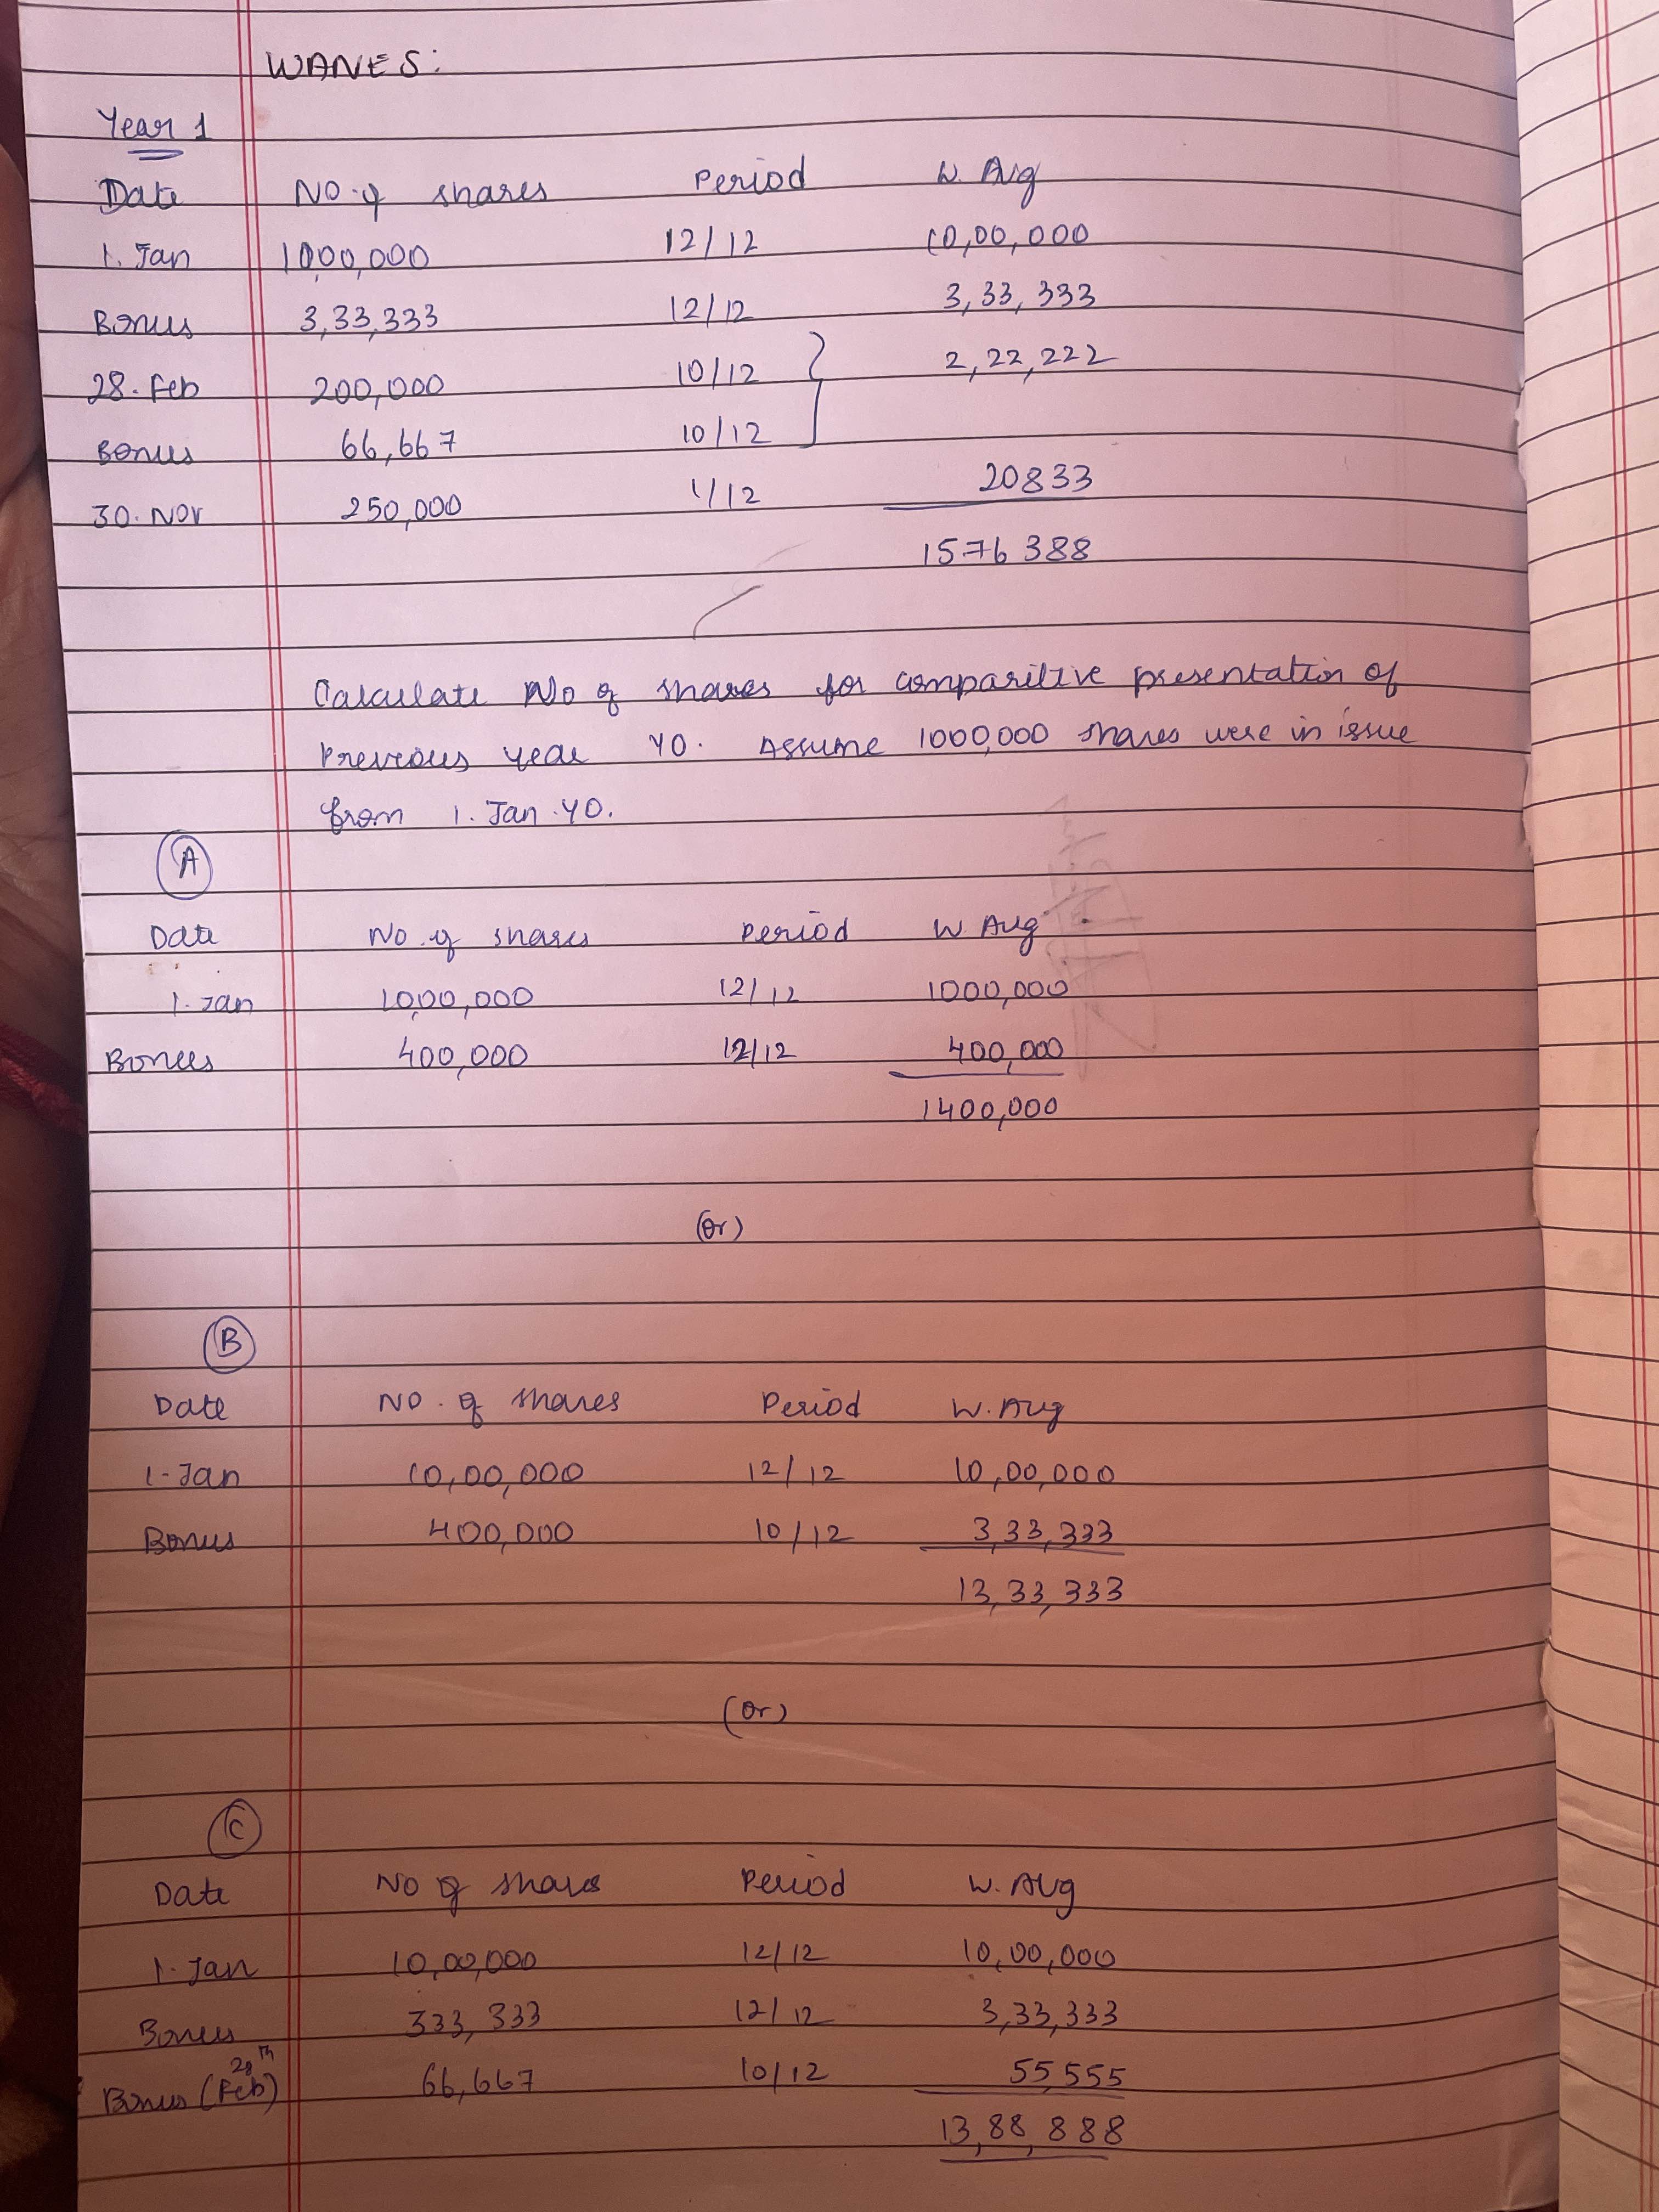 WANES:
Year 1
Date No. of shares Period W. Avg
1. Jan 1000,000 12/12 10,00,000
Bonus 3,33,333 12/12 3,33,333
28. Feb 200,000 10/12 2,22,222
Bonus 66,667 10/12
30. Nov 250,000 1/12 20833
1576388
Calculate No of shares for comparitive presentation of
previous year Y0. Assume 1000,000 shares were in issue
from 1. Jan. Y0.
A
Date No. of shares Period W Avg
1. Jan 1000,000 12/12 1000,000
Bonus 400,000 12/12 400,000
1400,000
(or)
B
Date No. of shares Period W. Avg
1-Jan 10,00,000 12/12 10,00,000
Bonus 400,000 10/12 3,33,333
13,33,333
(or)
C
Date No of shares Period W. Avg
1. Jan 10,00,000 12/12 10,00,000
Bonus 333,333 12/12 3,33,333
Bonus (28th Feb) 66,667 10/12 55,555
13,88,888